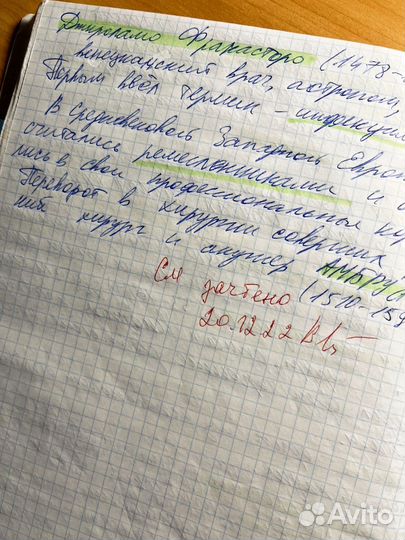 Джироламо Фракасторо (1478-
венецианский врач, астроном,
Первым ввёл термин - инфекция
В средневековой Западной Европ
считались ремесленниками и о
лись в свои профессиональные кор
Переворот в хирургии совершил
ний хирург и акушер АМБРУАЗ
(1510-159
См зачтено
20.12.22
Avito